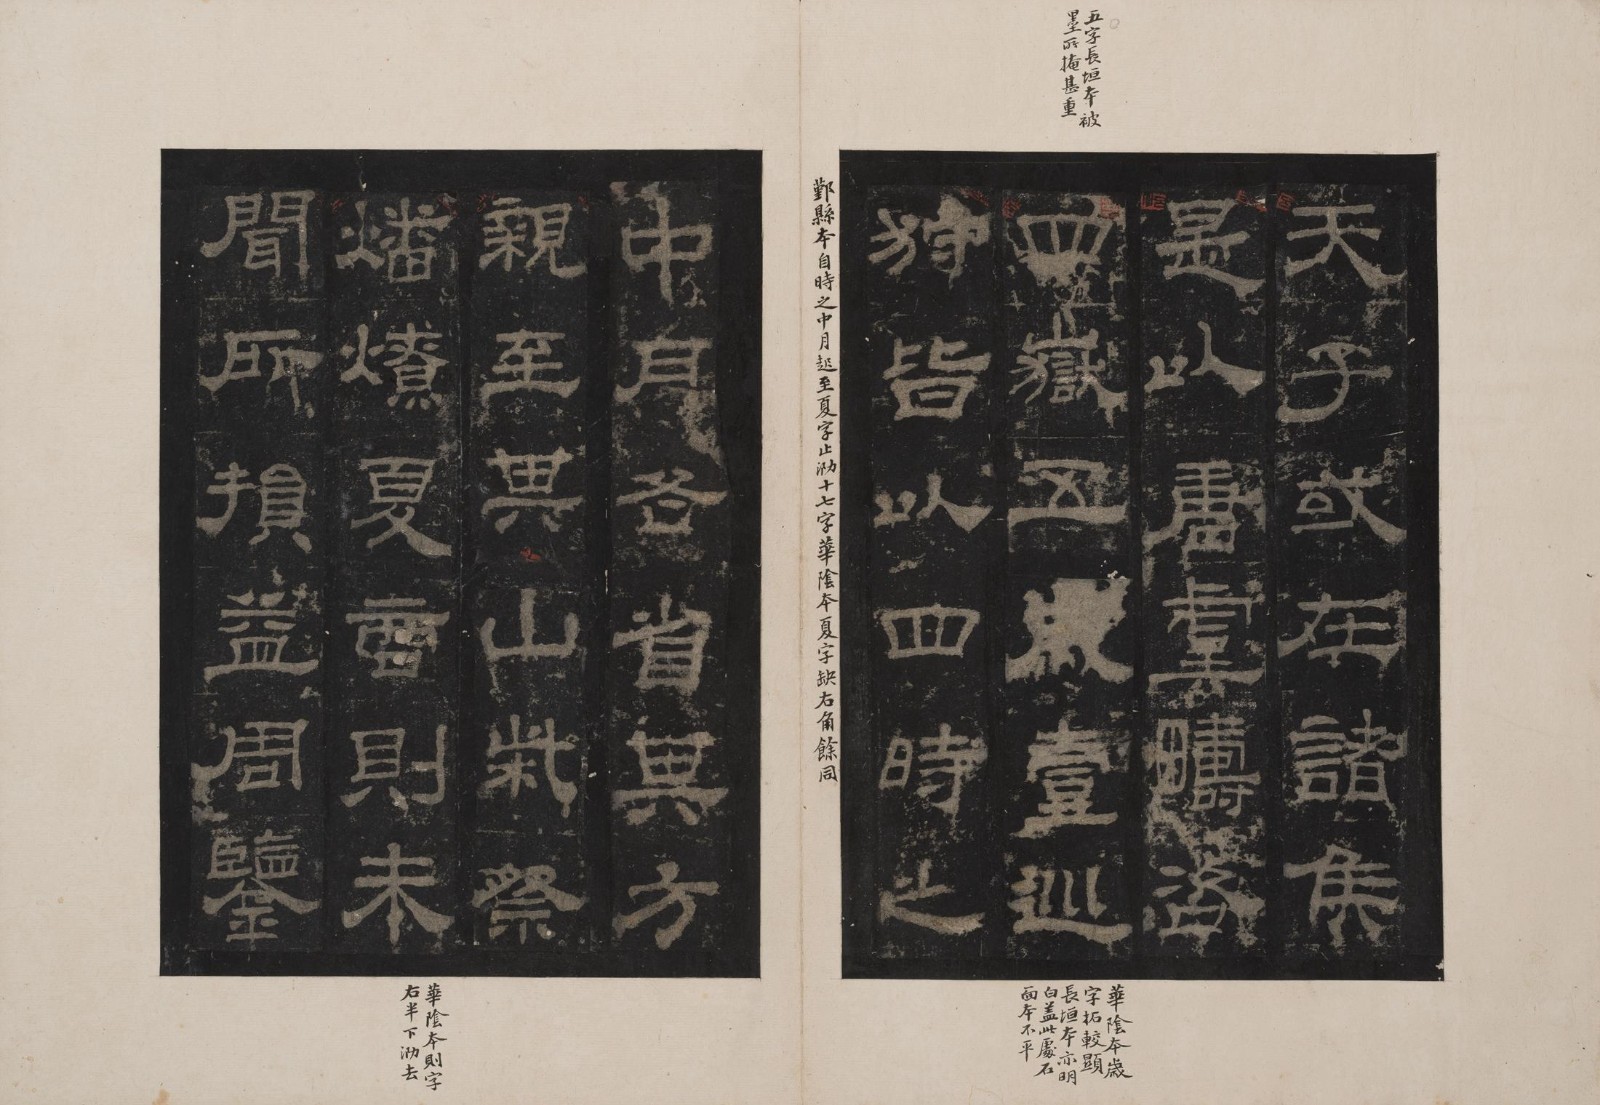 五字長垣本被
墨所掩甚重
天子或在諸侯
是以唐虞疇咨
四嶽五歲壹巡
狩皆以四時之
華陰本歲
字拓較顯
長垣本亦明
白蓋此處石
面本不平
鄞縣本自時之中月起至夏字止泐十七字華陰本夏字缺右角餘同
中月各省其方
親至其山柴祭
燔燎夏商則未
聞所損益周鑒
華陰本則字
右半下泐去